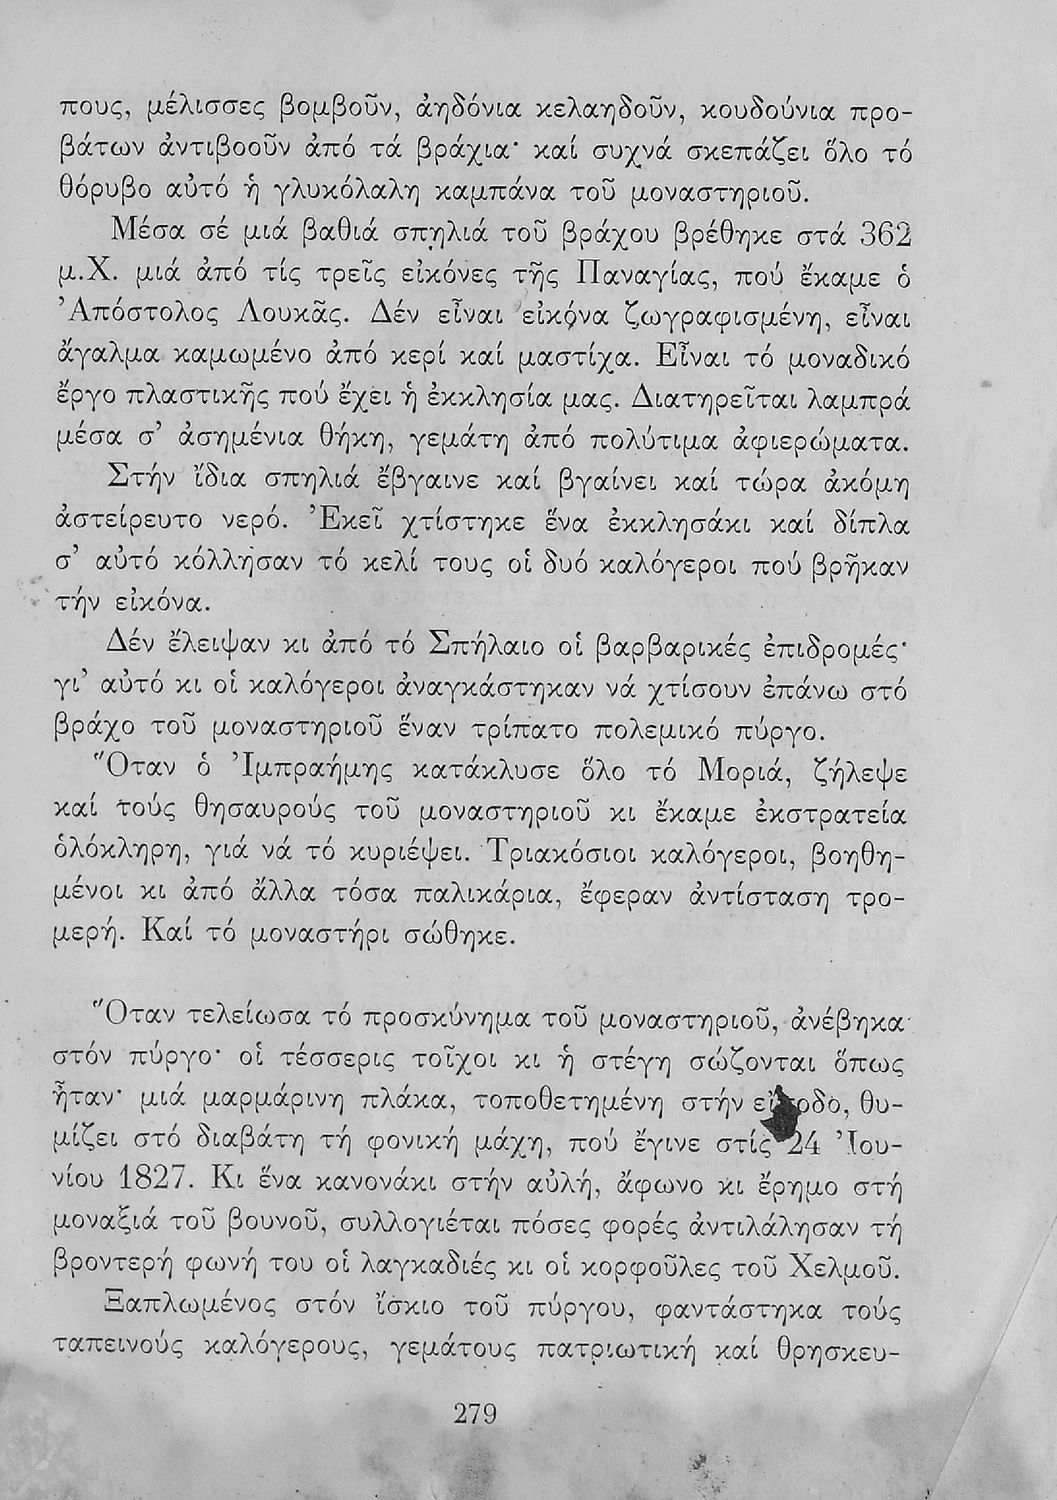 πους, μέλισσες βομβοῦν, ἀηδόνια κελαηδοῦν, κουδούνια προ-
βάτων ἀντιβοοῦν ἀπό τά βράχια· καί συχνά σκεπάζει ὅλο τό
θόρυβο αὐτό ἡ γλυκόλαλη καμπάνα τοῦ μοναστηριοῦ.
Μέσα σέ μιά βαθιά σπηλιά τοῦ βράχου βρέθηκε στά 362
μ.Χ. μιά ἀπό τίς τρεῖς εἰκόνες τῆς Παναγίας, πού ἔκαμε ὁ
Ἀπόστολος Λουκᾶς. Δέν εἶναι εἰκόνα ζωγραφισμένη, εἶναι
ἄγαλμα καμωμένο ἀπό κερί καί μαστίχα. Εἶναι τό μοναδικό
ἔργο πλαστικῆς πού ἔχει ἡ ἐκκλησία μας. Διατηρεῖται λαμπρά
μέσα σ’ ἀσημένια θήκη, γεμάτη ἀπό πολύτιμα ἀφιερώματα.
Στήν ἴδια σπηλιά ἔβγαινε καί βγαίνει καί τώρα ἀκόμη
ἀστείρευτο νερό. Ἐκεῖ χτίστηκε ἕνα ἐκκλησάκι καί δίπλα
σ’ αὐτό κόλλησαν τό κελί τους οἱ δυό καλόγεροι πού βρῆκαν
τήν εἰκόνα.
Δέν ἔλειψαν κι ἀπό τό Σπήλαιο οἱ βαρβαρικές ἐπιδρομές·
γι’ αὐτό κι οἱ καλόγεροι ἀναγκάστηκαν νά χτίσουν ἐπάνω στό
βράχο τοῦ μοναστηριοῦ ἕναν τρίπατο πολεμικό πύργο.
Ὅταν ὁ Ἰμπραήμης κατάκλυσε ὅλο τό Μοριά, ζήλεψε
καί τούς θησαυρούς τοῦ μοναστηριοῦ κι ἔκαμε ἐκστρατεία
ὁλόκληρη, γιά νά τό κυριέψει. Τριακόσιοι καλόγεροι, βοηθη-
μένοι κι ἀπό ἄλλα τόσα παλικάρια, ἔφεραν ἀντίσταση τρο-
μερή. Καί τό μοναστήρι σώθηκε.
Ὅταν τελείωσα τό προσκύνημα τοῦ μοναστηριοῦ, ἀνέβηκα
στόν πύργο· οἱ τέσσερις τοῖχοι κι ἡ στέγη σώζονται ὅπως
ἦταν· μιά μαρμάρινη πλάκα, τοποθετημένη στήν εἴσοδο, θυ-
μίζει στό διαβάτη τή φονική μάχη, πού ἔγινε στίς 24 Ἰου-
νίου 1827. Κι ἕνα κανονάκι στήν αὐλή, ἄφωνο κι ἔρημο στή
μοναξιά τοῦ βουνοῦ, συλλογιέται πόσες φορές ἀντιλάλησαν τή
βροντερή φωνή του οἱ λαγκαδιές κι οἱ κορφοῦλες τοῦ Χελμοῦ.
Ξαπλωμένος στόν ἴσκιο τοῦ πύργου, φαντάστηκα τούς
ταπεινούς καλόγερους, γεμάτους πατριωτική καί θρησκευ-
279